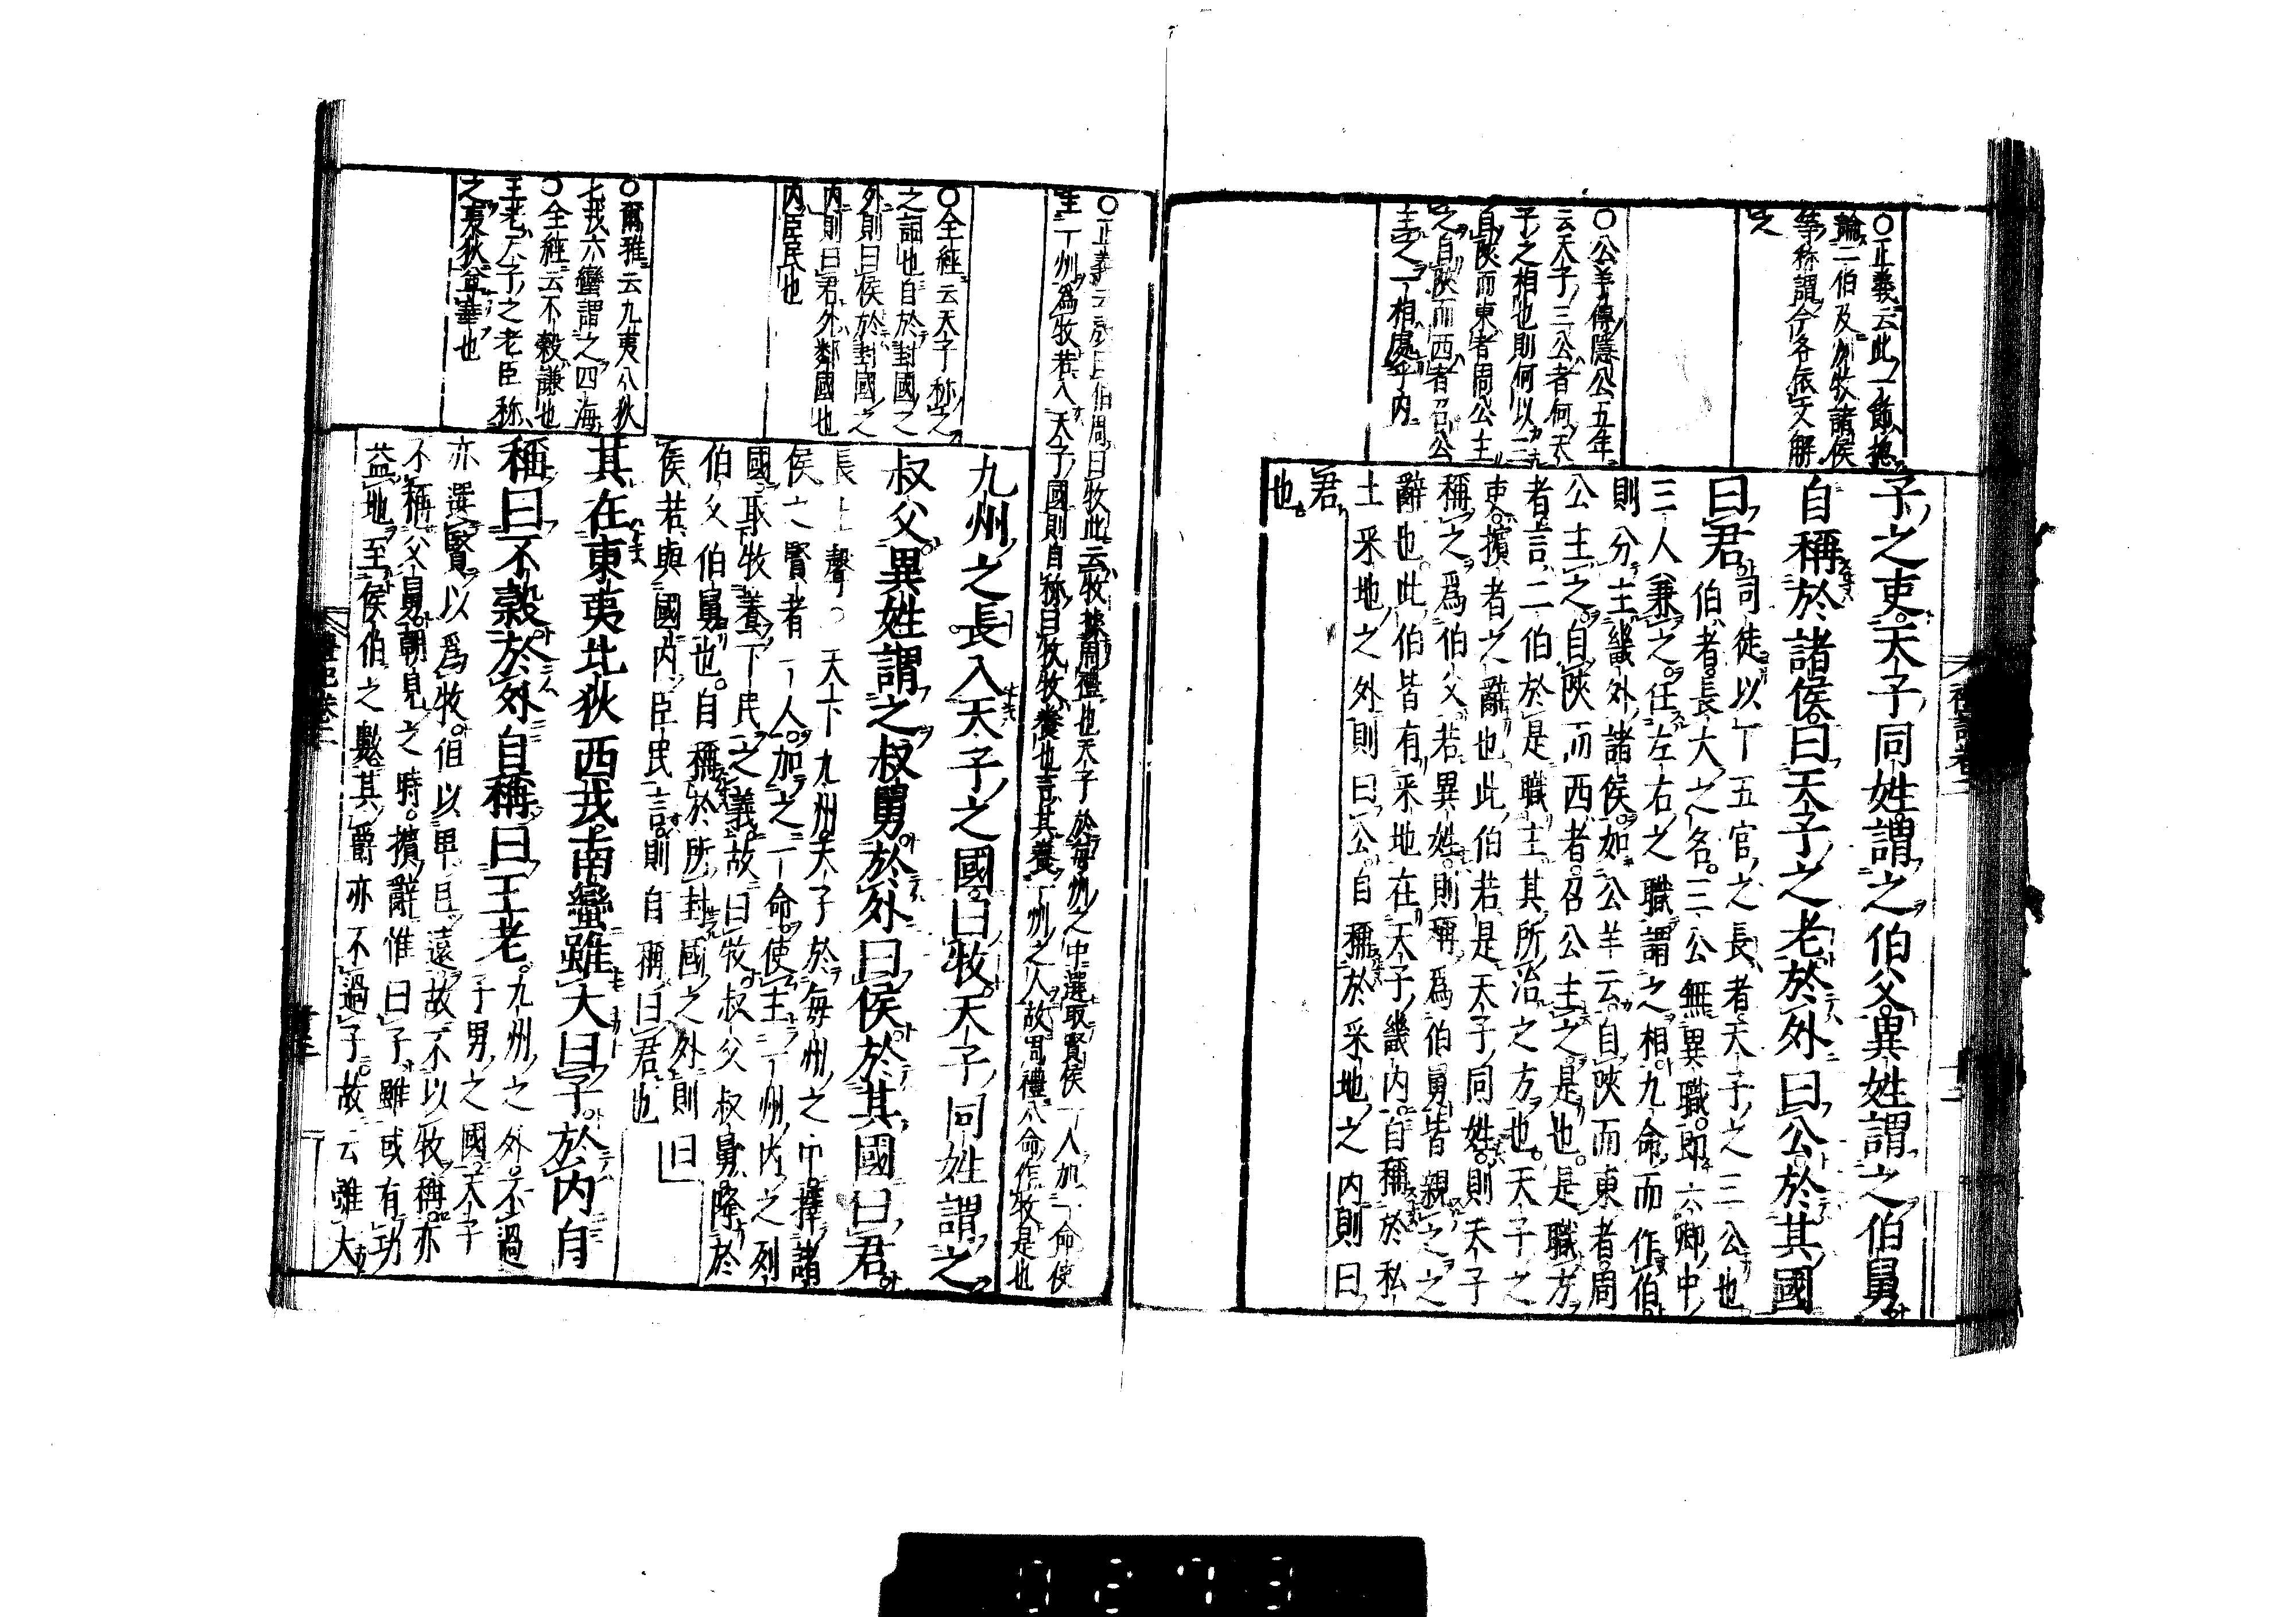 ○正義云此一節揔
論二伯及州牧諸侯
等称謂今各依文解
之
○公羊傳隱公五年
云天子三公者何天
子之相也則何以三
自陝而東者周公主
之自陝而西者召公
主之一相處乎内
子之吏天子同姓謂之伯父異姓謂之伯舅
自稱於諸侯曰天子之老於外曰公於其國
曰君
司徒以下五官之長者天子之三公也
伯者長大之名三公無異職即六卿中
三人兼之任左右之職謂之相九命而作伯
則分主畿外諸侯如公羊云自陝而東者周
公主之自陝而西者召公主之是也是職方
者言二伯於是職主其所治之方也天子之
吏擯者之辭也此伯若是天子同姓則天子
稱之爲伯父若異姓則稱爲伯舅皆親之之
辭也此伯皆有采地在天子畿内自稱於私
土采地之外則曰公自稱於采地之内則曰
君
也
禮記卷二
十二
○正義云
伯周曰牧此云牧據周禮也天子於每州之中選取賢侯一人加一命使
主一州爲牧若入天子國則自称曰牧牧養也言其養一州之人故周禮八命作牧是也
○全經云天子称之
之詞也自於封國之
外則曰侯於封國之
内則曰君外鄰國也
内臣民也
○爾雅云九夷八狄
七戎六蠻謂之四海
○全經云不穀謙也
王老天子之老臣称
之夷狄
也
九州之長入天子之國曰牧天子同姓謂之
叔父異姓謂之叔舅於外曰侯於其國曰君
長上聲○天下九州天子於每州之中擇諸
侯之賢者一人加之一命使主一州内之列
國取牧養下民之義故曰牧叔父叔舅降於
伯父伯舅也自稱於所封國之外則曰
侯若與國内臣民言則自稱曰君也
其在東夷北狄西戎南蠻雖大曰子於内自
稱曰不穀於外自稱曰王老
九州之外不過
子男之國天子
亦選賢以爲牧但以卑且遠故不以牧稱亦
不稱父舅朝見之時擯辭惟曰子雖或有功
益地至侯伯之數其爵亦不過子故云雖大